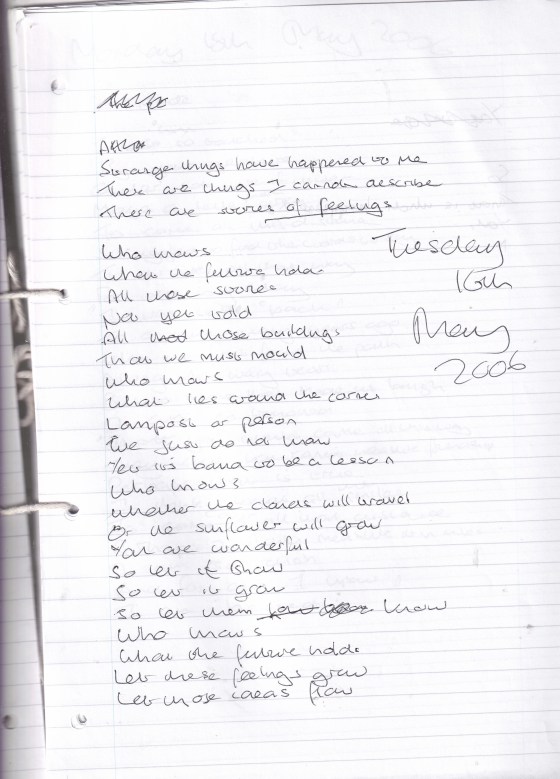 Strange things have happened to me
There are things I cannot describe
There are stores of feelings
Who knows
What the future holds
All those stores
Not yet told
All those buildings
That we must mould
Who knows
What lies around the corner
Lampost or person
We just do not know
Yet it's bound to be a lesson
Who knows
Whether the clouds will travel
Or the sunflower will grow
You are wonderful
So let it show
So let it grow
So let them know
Who knows
What the future holds
Let these feelings grow
Let those ideas flow
Tuesday
16th
May
2006